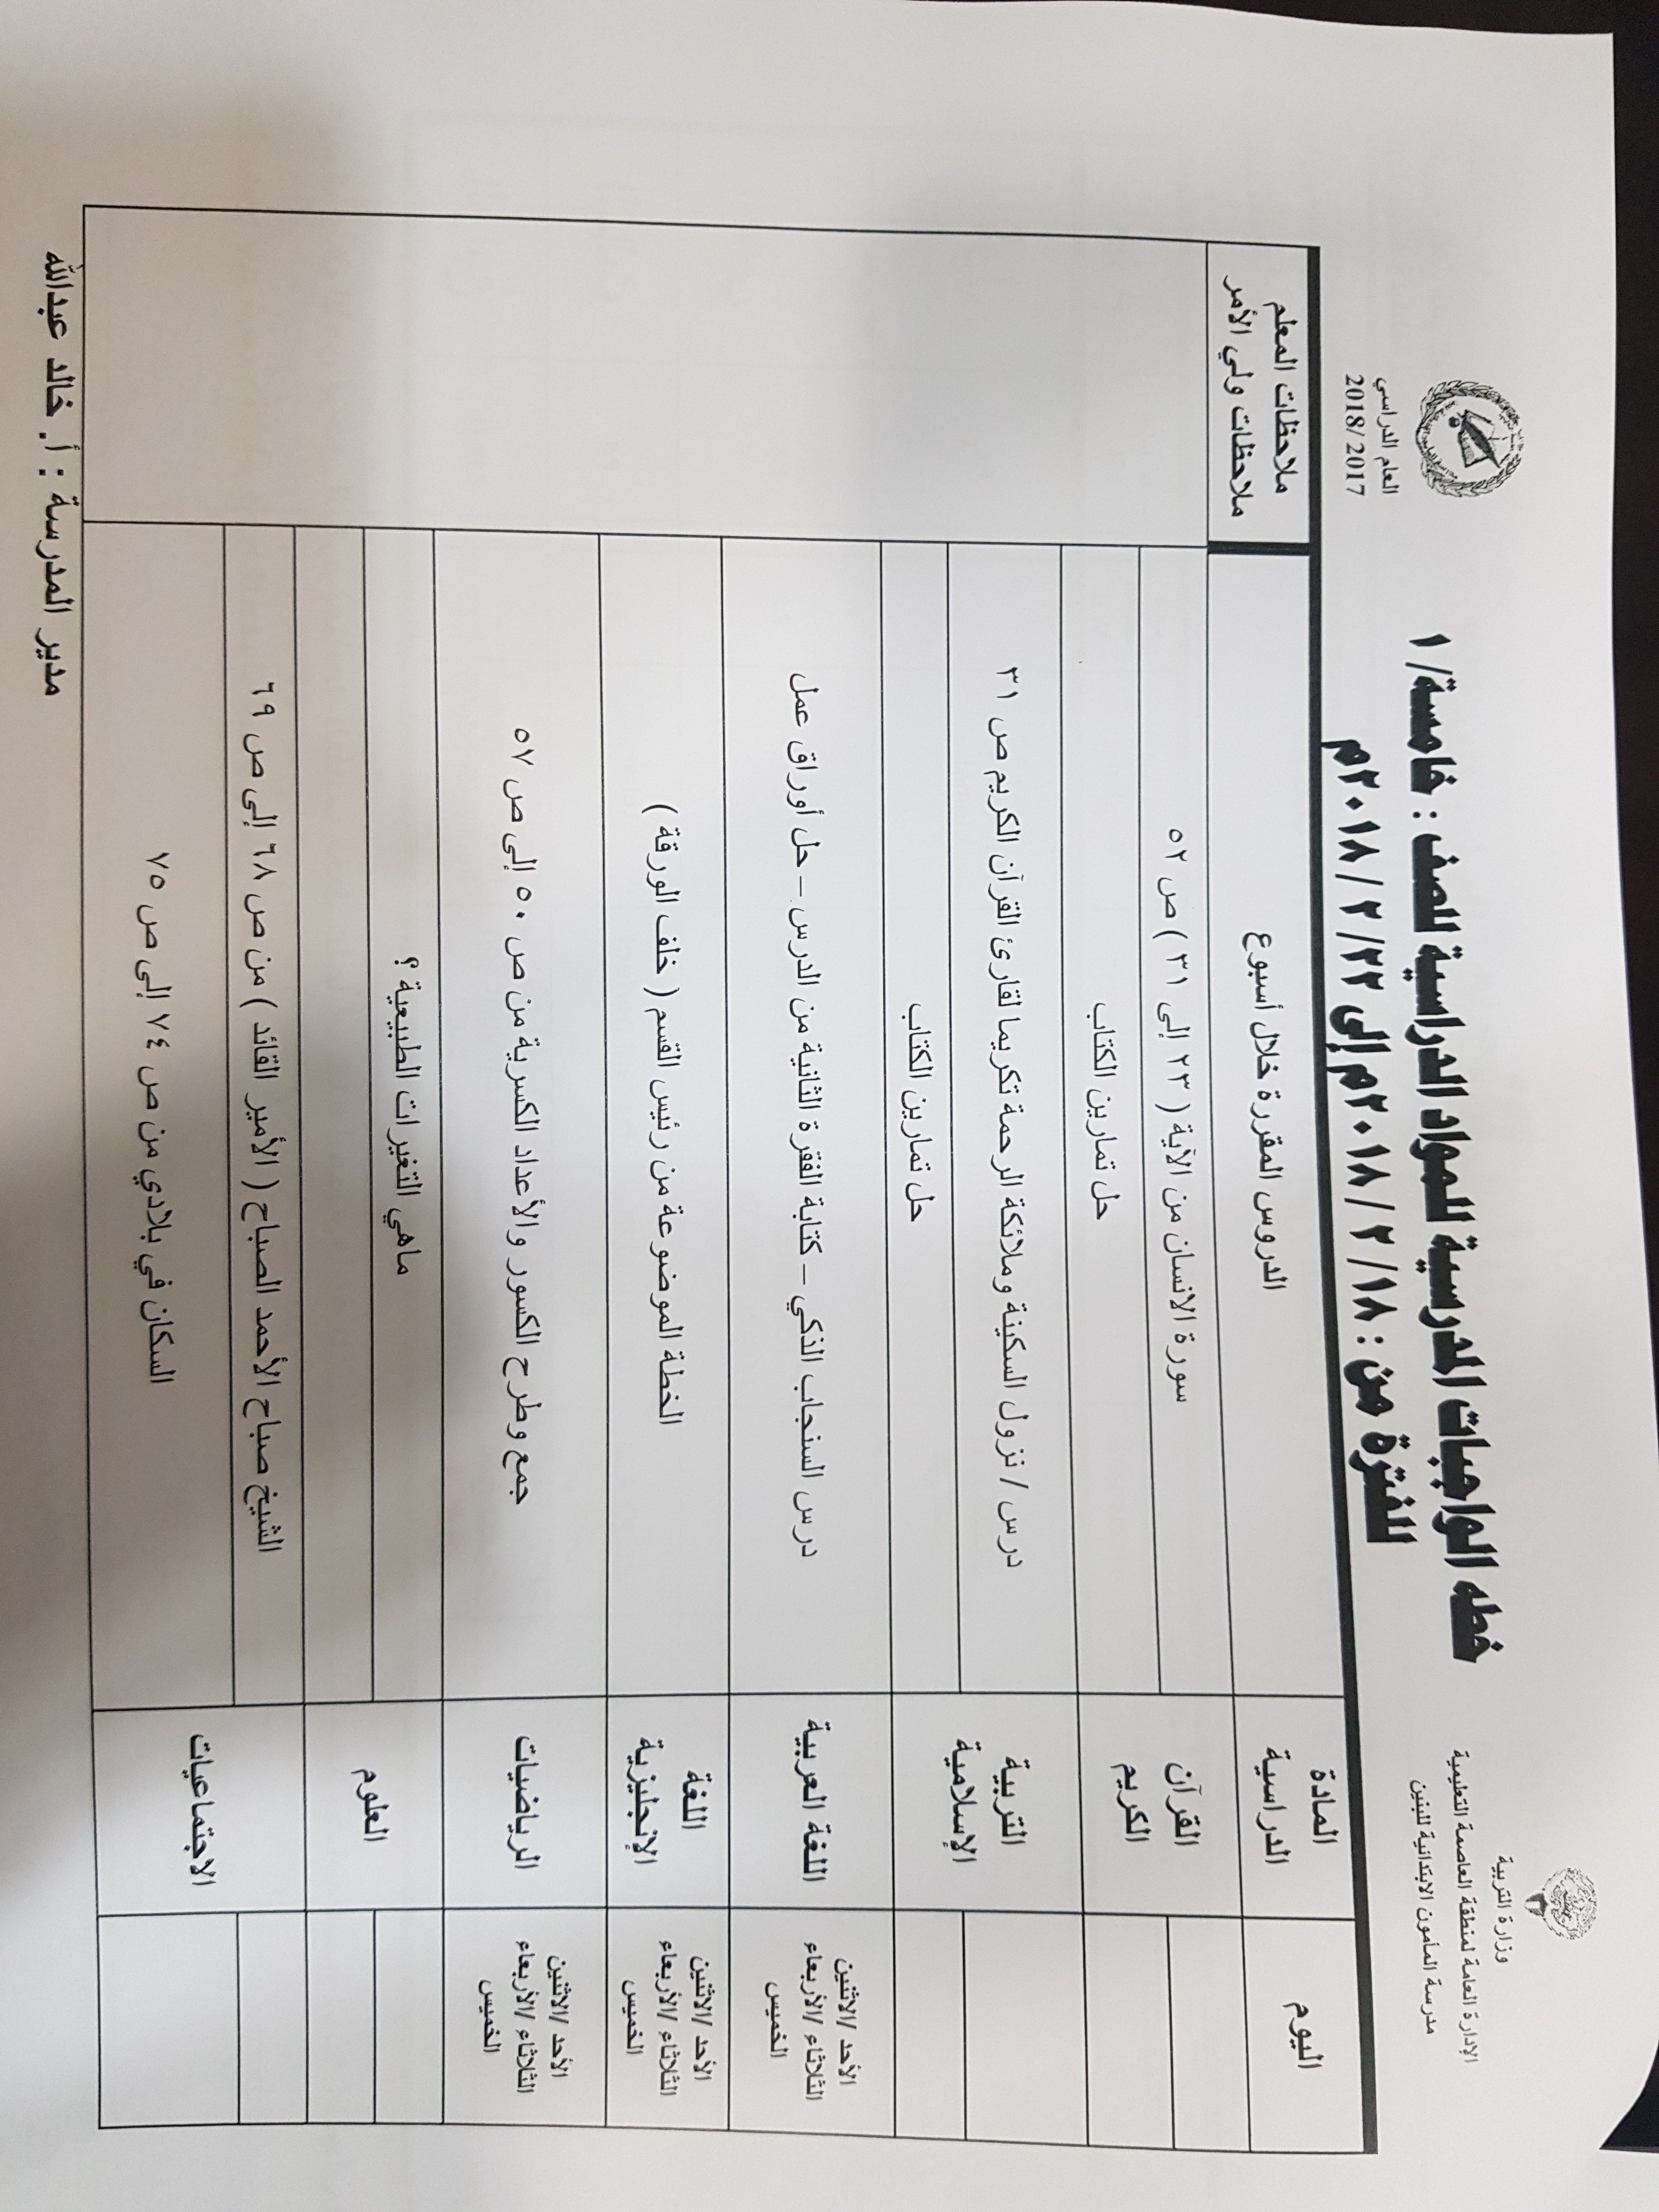 وزارة التربية
الإدارة العامة لمنطقة العاصمة التعليمية
مدرسة المأمون الابتدائية للبنين
خطه الواجبات المدرسية للمواد الدراسية للصف : خامسة/ ١
للفترة من : ١٨/ ٢ / ٢٠١٨م إلى ٢٢/ ٢ / ٢٠١٨م
العام الدراسي
2018/ 2017
اليوم
المادة
الدراسية
الدروس المقررة خلال أسبوع
ملاحظات المعلم
ملاحظات ولي الأمر
القرآن
الكريم
سورة الانسان من الآية ( ٢٣ إلى ٣١ ) ص ٥٢
حل تمارين الكتاب
التربية
الإسلامية
درس / نزول السكينة وملائكة الرحمة تكريما لقارئ القرآن الكريم ص ٣١
حل تمارين الكتاب
الأحد /الاثنين
الثلاثاء /الأربعاء
الخميس
اللغة العربية
درس السنجاب الذكي – كتابة الفقرة الثانية من الدرس – حل أوراق عمل
الأحد /الاثنين
الثلاثاء /الأربعاء
الخميس
اللغة
الإنجليزية
الخطة الموضوعة من رئيس القسم ( خلف الورقة )
الأحد /الاثنين
الثلاثاء /الأربعاء
الخميس
الرياضيات
جمع وطرح الكسور والأعداد الكسرية من ص ٥٠ إلى ص ٥٧
العلوم
ماهي التغيرات الطبيعية ؟
الاجتماعيات
الشيخ صباح الأحمد الصباح ( الأمير القائد ) من ص ٦٨ إلى ص ٦٩
السكان في بلادي من ص ٧٤ إلى ص ٧٥
مدير المدرسة : أ. خالد عبدالله